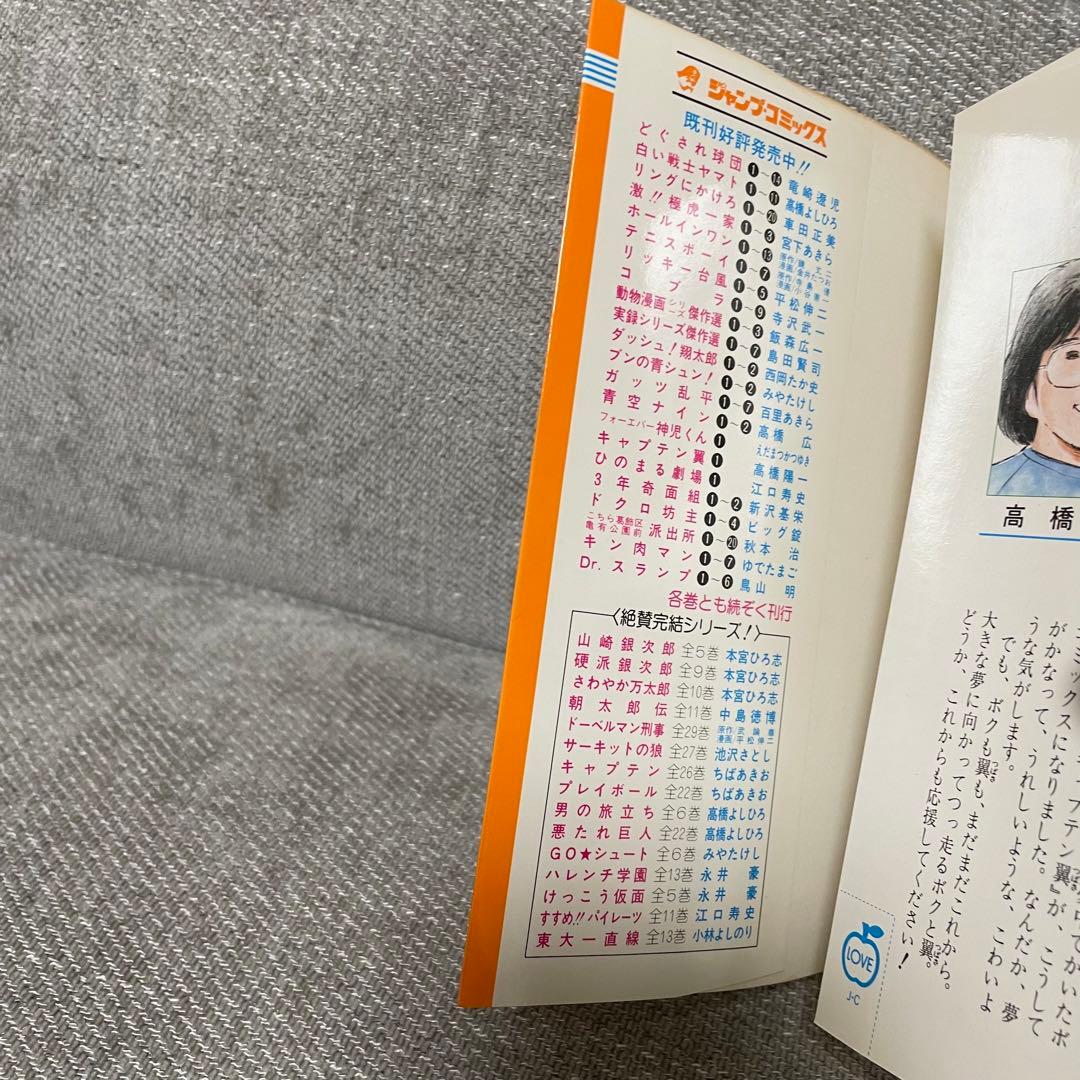 ジャンプ・コミックス
既刊好評発売中!!
どぐされ球団 1〜14 竜崎遼児
白い戦士ヤマト 1〜11 高橋よしひろ
リングにかけろ 1〜20 車田正美
激!!極虎一家 1〜3 宮下あきら
ホールインワン 1〜13 原作/鏡丈二 漫画/金井たつお
テニスボーイ 1〜7 原作/寺島優 漫画/小谷憲一
リッキー台風 1〜5 平松伸二
コブラ 1〜9 寺沢武一
動物漫画シリーズ傑作選 1〜3 飯森広一
実録シリーズ傑作選 1〜7 島田賢司
ダッシュ!翔太郎 1〜2 西岡たか史
ブンの青シュン! 1〜2 みやたけし
ガッツ乱平 1〜7 百里あきら
青空ナイン 1〜2 高橋広
フォーエバー神児くん 1 えだまつかつゆき
キャプテン翼 1 高橋陽一
ひのまる劇場 1 江口寿史
3年奇面組 1〜2 新沢基栄
ドクロ坊主 1〜4 ビッグ錠
こちら葛飾区亀有公園前派出所 1〜20 秋本治
キン肉マン 1〜7 ゆでたまご
Dr.スランプ 1〜6 鳥山明
各巻とも続ぞく刊行
〈絶賛完結シリーズ!〉
山崎銀次郎 全5巻 本宮ひろ志
硬派銀次郎 全9巻 本宮ひろ志
さわやか万太郎 全10巻 本宮ひろ志
朝太郎伝 全11巻 中島徳博
ドーベルマン刑事 全29巻 原作/武論尊 漫画/平松伸二
サーキットの狼 全27巻 池沢さとし
キャプテン 全26巻 ちばあきお
プレイボール 全22巻 ちばあきお
男の旅立ち 全6巻 高橋よしひろ
悪たれ巨人 全22巻 高橋よしひろ
GO★シュート 全6巻 みやたけし
ハレンチ学園 全13巻 永井豪
けっこう仮面 全5巻 永井豪
すすめ!!パイレーツ 全11巻 江口寿史
東大一直線 全13巻 小林よしのり
高橋
てかいたボ
コミックスになりました。なんだか、夢
がかなって、うれしいような、こわいよ
うな気がします。
でも、ボクも翼も、まだまだこれから。
大きな夢に向かってつっ走るボクと翼。
どうか、これからも応援してください!
LOVE
J・C